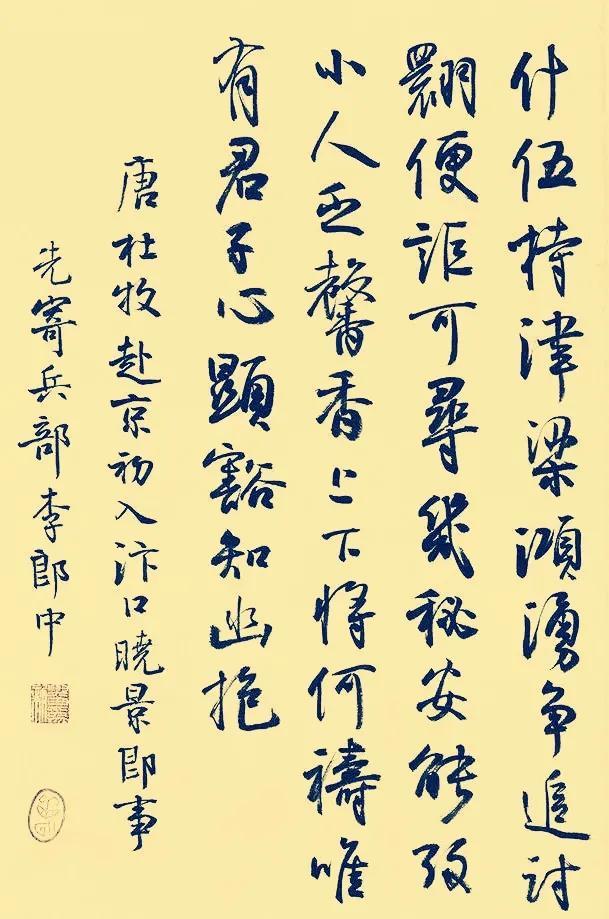 什伍持津梁澒湧争追討
翾便詎可尋幾秘安能攷
小人乏馨香上下將何禱唯
有君子心顯豁知幽抱
唐杜牧赴京初入汴口曉景即事
先寄兵部李郎中